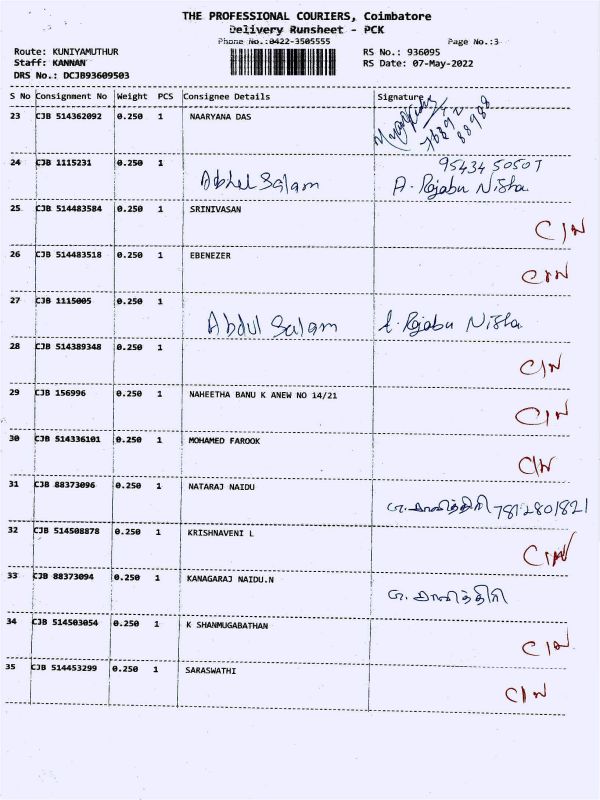 THE PROFESSIONAL COURIERS, Coimbatore
Delivery Runsheet - PCK
Phone No.:0422-3505555 Page No.:3
Route: KUNIYAMUTHUR RS No.: 936095
Staff: KANNAN RS Date: 07-May-2022
DRS No.: DCJB93609503
S No Consignment No Weight PCS Consignee Details Signature
23 CJB 514362092 0.250 1 NAARYANA DAS
88988
24 CJB 1115231 0.250 1 Abdul Salam 9543450507
A. Rajabu Nisha
25 CJB 514483584 0.250 1 SRINIVASAN C/N
26 CJB 514483518 0.250 1 EBENEZER C/N
27 CJB 1115005 0.250 1 Abdul Salam A. Rajabu Nisha
28 CJB 514389348 0.250 1 C/N
29 CJB 156996 0.250 1 NAHEETHA BANU K ANEW NO 14/21 C/N
30 CJB 514336101 0.250 1 MOHAMED FAROOK C/N
31 CJB 88373096 0.250 1 NATARAJ NAIDU 7812801821
32 CJB 514508878 0.250 1 KRISHNAVENI L C/N
33 CJB 88373094 0.250 1 KANAGARAJ NAIDU.N
34 CJB 514503054 0.250 1 K SHANMUGABATHAN C/N
35 CJB 514453299 0.250 1 SARASWATHI C/N